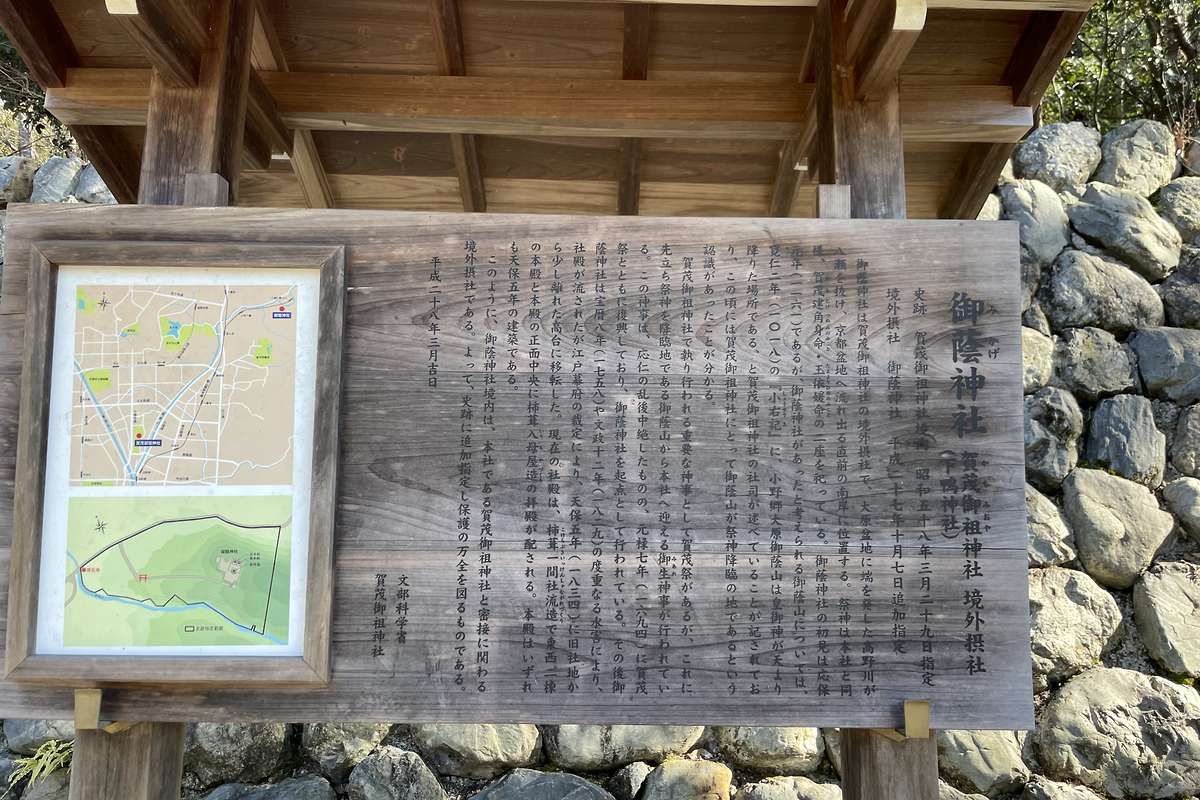 御蔭神社 賀茂御祖神社 境外摂社
(下鴨神社)
史跡 賀茂御祖神社境内 昭和五十八年三月二十九日指定
境外摂社 御蔭神社 平成二十七年十月七日追加指定
御蔭神社は賀茂御祖神社の境外摂社で、大原盆地に端を発した高野川が
八瀬を抜け、京都盆地へ流れ出す直前の南岸に位置する。祭神は本社と同
様、賀茂建角身命・玉依媛命の二座を祀っている。御蔭神社の初見は応保
元年(一一六一)であるが、御蔭神社があったと考えられる御蔭山については、
寛仁二年(一〇一八)の『小右記』に、小野郷大原御蔭山は皇御神が天より
降りた場所である、と賀茂御祖神社の社司が述べていることが記されてお
り、この頃には賀茂御祖神社にとって御蔭山が祭神降臨の地であるという
認識があったことが分かる。
賀茂御祖神社で執り行われる重要な神事として賀茂祭があるが、これに
先立ち祭神を降臨地である御蔭山から本社へ迎える御生神事が行われてい
る。この神事は、応仁の乱後中絶したものの、元禄七年(一六九四)に賀茂
祭とともに復興しており、御蔭神社を起点として行われている。その後御
蔭神社は宝暦八年(一七五八)や文政十二年(一八二九)の度重なる水害により、
社殿が流されたが江戸幕府の裁定により、天保五年(一八三四)に旧社地か
ら少し離れた高台に移転した。現在の社殿は、柿葺一間社流造で東西二棟
の本殿と本殿の正面中央に柿葺入母屋造の拝殿が配される。本殿はいずれ
も天保五年の建築である。
このように、御蔭神社境内は、本社である賀茂御祖神社と密接に関わる
境外摂社である。よって、史跡に追加指定し保護の万全を図るものである。
平成二十八年三月吉日
文部科学省
賀茂御祖神社
御蔭神社
賀茂御祖神社
御蔭神社